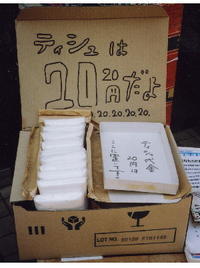 ティシュは
20
20円だよ
.20.20.20.20.
ティッシュ代金
20円は
ここに置いて下さい
LOT NO.